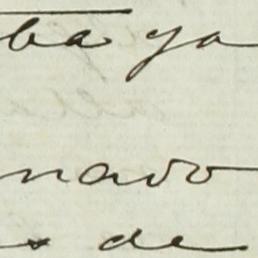 ba ya
nado
s de